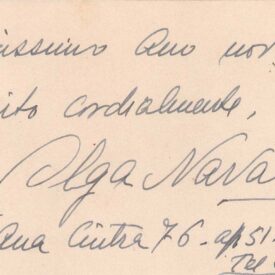 issimo Ano nov
ito cordialmente,
Olga Nava
Ana Cintra 76 - ap. 51.
Tel